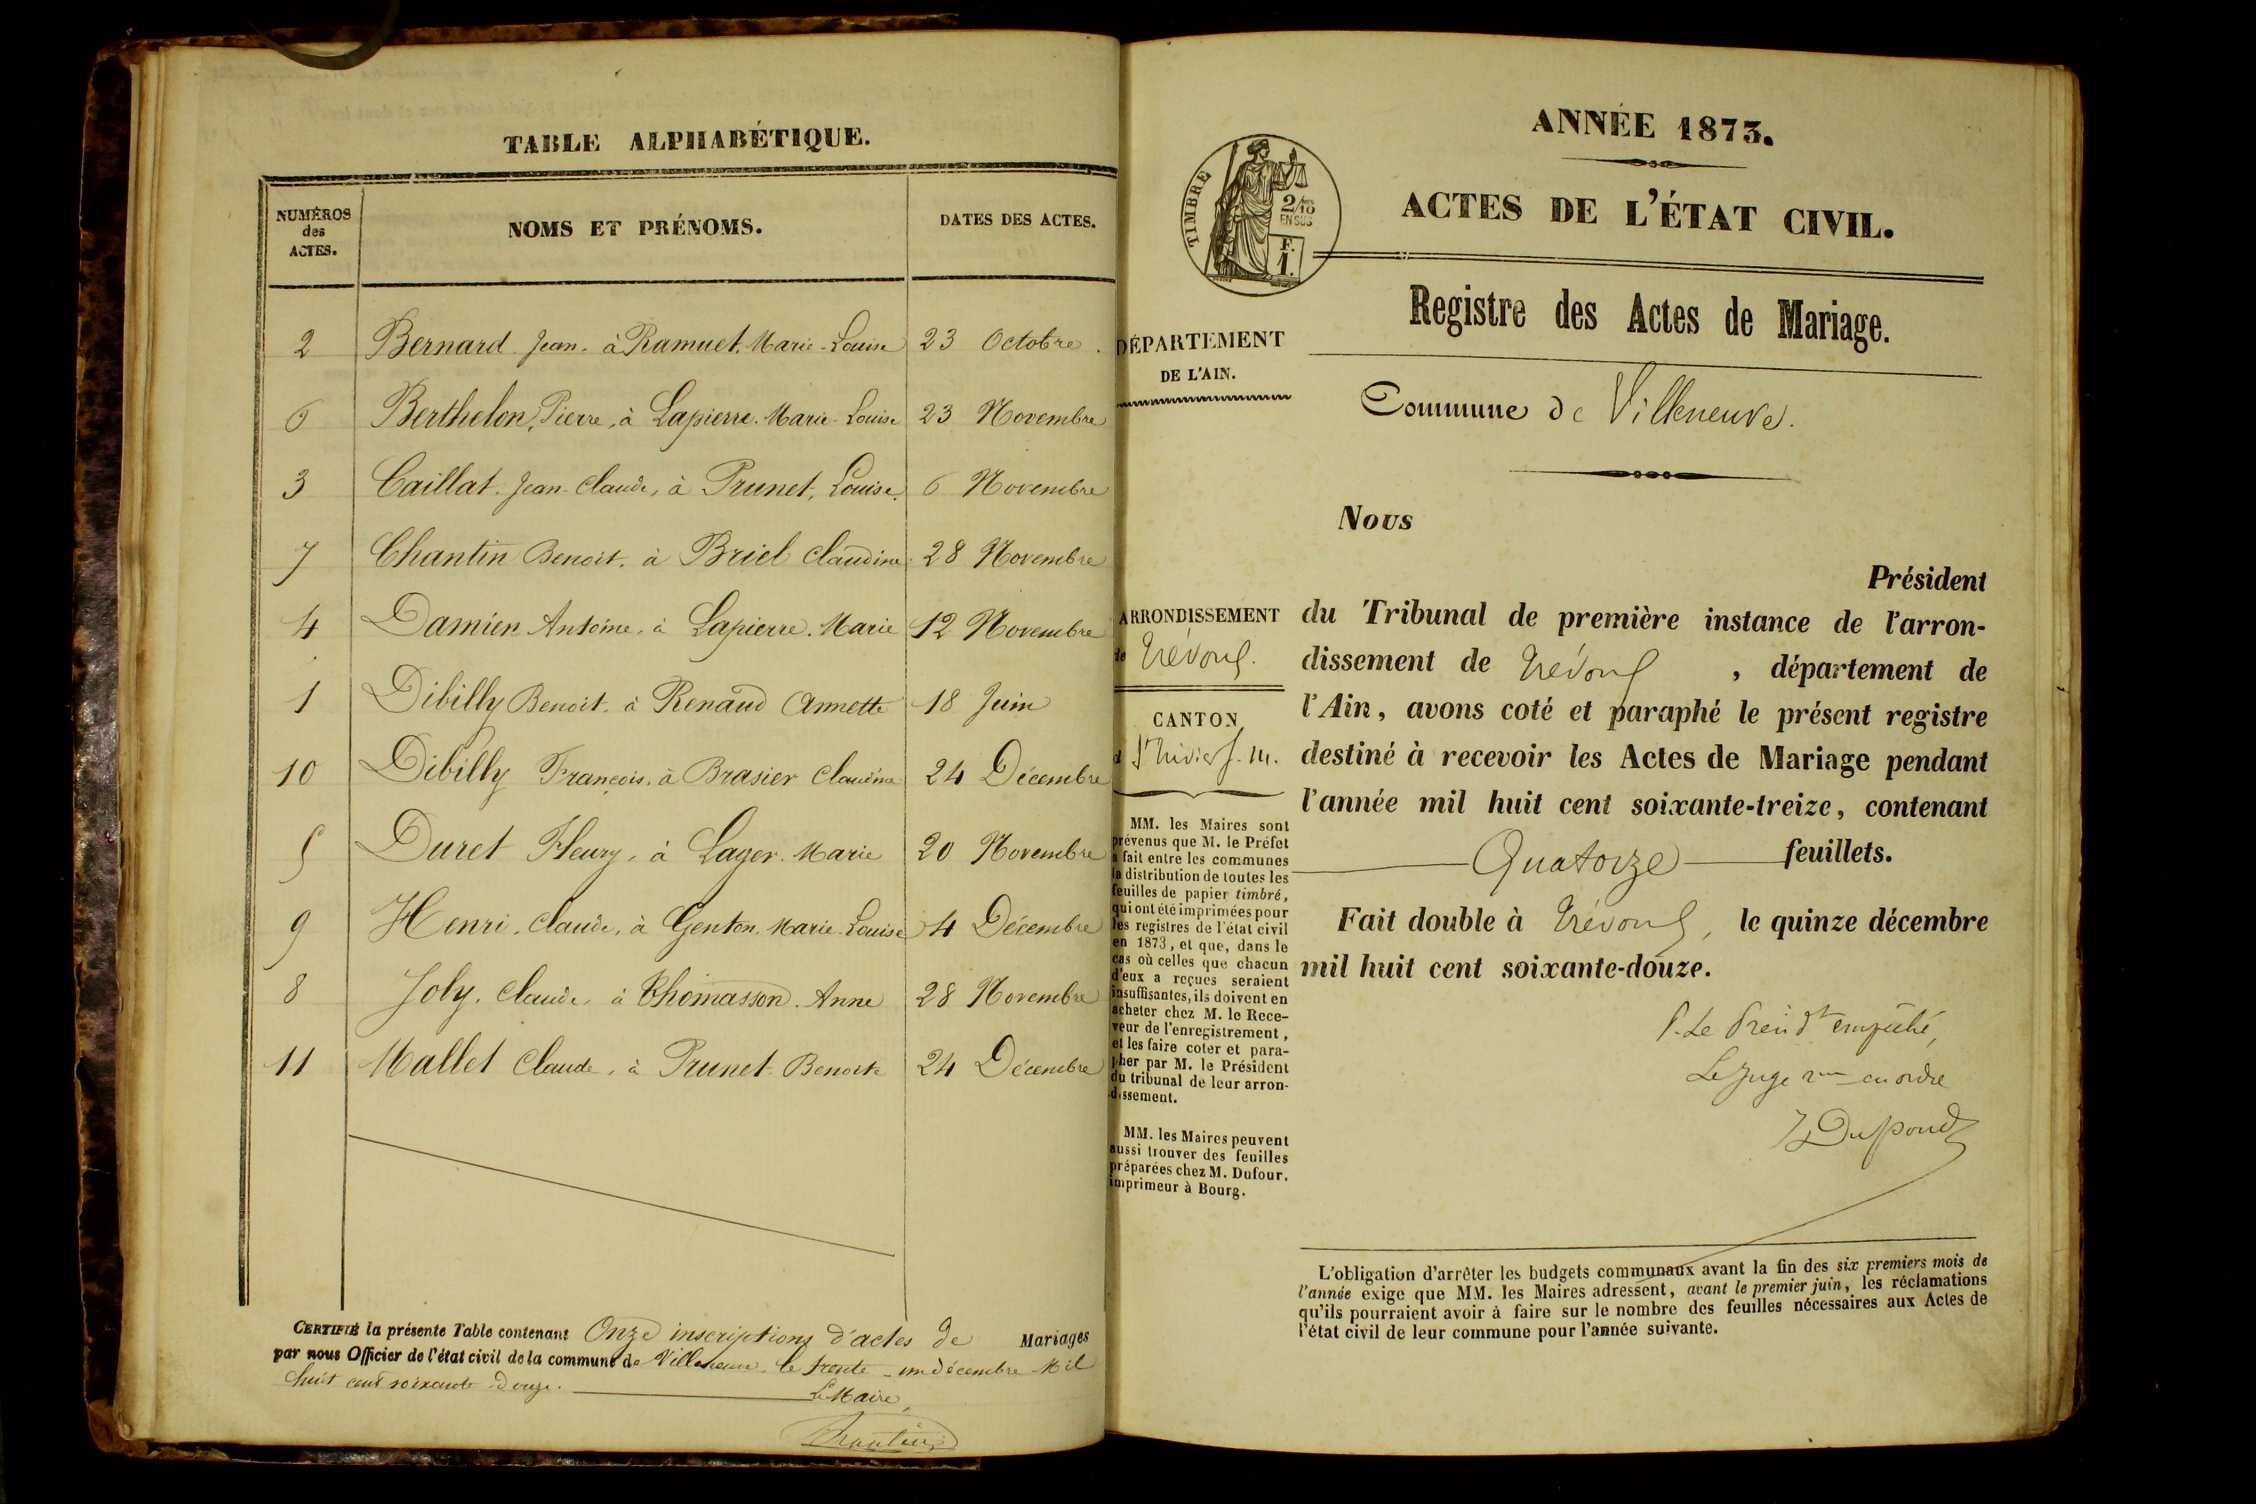 TABLE ALPHABÉTIQUE.
NUMÉROS des ACTES.
NOMS ET PRÉNOMS.
DATES DES ACTES.
2 Bernard Jean. à Ramuet. Marie-Louise 23 Octobre.
6 Berthelon, Pierre, à Lapierre. Marie-Louise 23 Novembre
3 Caillat. Jean-Claude, à Prunet, Louise. 6 Novembre
7 Chantin Benoit. à Briel Claudine 28 Novembre
4 Damien Antoine, à Lapierre. Marie 12 Novembre
1 Dibilly Benoit. à Renaud Annette 18 Juin
10 Dibilly François. à Brasier Claudine 24 Décembre
5 Duret Fleury, à Lager. Marie 20 Novembre
9 Henri. Claude, à Genton. Marie-Louise 4 Décembre
8 Joly. Claude, à Thomasson. Anne 28 Novembre
11 Mallet Claude, à Prunet Benoite 24 Décembre
CERTIFIÉ la présente Table contenant Onze inscriptions d'actes de Mariages
par nous Officier de l'état civil de la commune de Villeneuve le trente-un décembre Mil
huit cent soixante douze.
Le Maire,
Chantin
ANNÉE 1873.
ACTES DE L'ÉTAT CIVIL.
TIMBRE
2/10
EN SUS
F.
1.
Registre des Actes de Mariage.
DÉPARTEMENT
DE L'AIN.
Commune de Villeneuve.
ARRONDISSEMENT
de Trévoux.
CANTON
d St Trivier s. m.
MM. les Maires sont
prévenus que M. le Préfet
a fait entre les communes
la distribution de toutes les
feuilles de papier timbré,
qui ont été imprimées pour
les registres de l'état civil
en 1873, et que, dans le
cas où celles que chacun
d'eux a reçues seraient
insuffisantes, ils doivent en
acheter chez M. le Rece-
veur de l'enregistrement,
et les faire coter et para-
pher par M. le Président
du tribunal de leur arron-
dissement.
MM. les Maires peuvent
aussi trouver des feuilles
préparées chez M. Dufour,
imprimeur à Bourg.
Nous
Président
du Tribunal de première instance de l'arron-
dissement de Trévoux, département de
l'Ain, avons coté et paraphé le présent registre
destiné à recevoir les Actes de Mariage pendant
l'année mil huit cent soixante-treize, contenant
Quatorze feuillets.
Fait double à Trévoux, le quinze décembre
mil huit cent soixante-douze.
P. Le Présidt empêché,
Le Juge en ordre
Dupond
L'obligation d'arrêter les budgets communaux avant la fin des six premiers mois de
l'année exige que MM. les Maires adressent, avant le premier juin, les réclamations
qu'ils pourraient avoir à faire sur le nombre des feuilles nécessaires aux Actes de
l'état civil de leur commune pour l'année suivante.